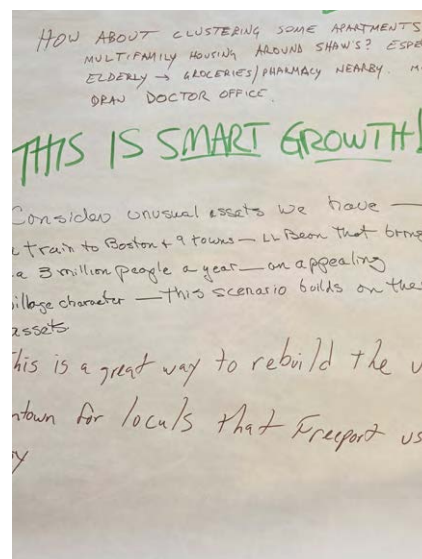 HOW ABOUT CLUSTERING SOME APARTMENTS
MULTIFAMILY HOUSING AROUND SHAW'S? ESPE
ELDERLY → GROCERIES/PHARMACY NEARBY. M
DRAW DOCTOR OFFICE.
THIS IS SMART GROWTH!
Consider unusual assets we have —
train to Boston + 9 towns — LL Bean that brings
a 3 million people a year — an appealing
village character — this scenario builds on the
assets
This is a great way to rebuild the v
ntown for locals that Freeport us